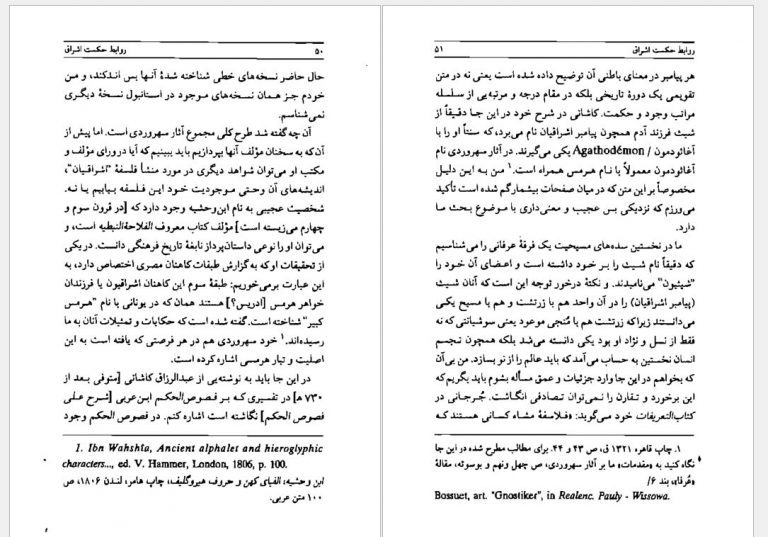 ۵۰ روابط حکمت اشراق
حال حاضر نسخه‌های خطی شناخته شدهٔ آنها بس اندکند، و من
خودم جز همان نسخه‌های موجود در استانبول نسخهٔ دیگری
نمی‌شناسم.
آن چه گفته شد طرح کلی مجموع آثار سهروردی است. اما پیش از
آن که به سخنان مؤلف آنها بپردازیم باید ببینیم که آیا در ورای مؤلف و
مکتب او می‌توان شواهد دیگری در مورد منشأ فلسفهٔ "اشراقیان"،
اندیشه‌های آن وحتی موجودیت خود این فلسفه بیابیم یا نه.
شخصیت عجیبی به نام ابن‌وحشیه وجود دارد که [در قرون سوم و
چهارم می‌زیسته است] مؤلف کتاب معروف الفلاحة‌النبطیه است، و
می‌توان او را نوعی داستان‌پرداز نابغهٔ تاریخ فرهنگی دانست. در یکی
از تحقیقات او که به گزارش طبقات کاهنان مصری اختصاص دارد، به
این عبارت برمی‌خوریم: طبقهٔ سوم این کاهنان اشراقیون یا فرزندان
خواهر هرمس [ادریس؟] هستند همان که در یونانی با نام "هرمس
کبیر" شناخته است. گفته شده است که حکایات و تمثیلات آنان به ما
رسیده‌اند.۱ خود سهروردی هم در هر فرصتی که یافته است به این
اصلیت و تبار هرمسی اشاره کرده است.
در این جا باید به نوشته‌یی از عبدالرزاق کاشانی [متوفی بعد از
۷۳۰ ه‍] در تفسیری که بر فصوص‌الحکم ابن‌عربی [شرح علی
فصوص الحکم] نگاشته است اشاره کنم. در فصوص الحکم وجود
1. Ibn Wahshta, Ancient alphabet and hieroglyphic
characters..., ed. V. Hammer, London, 1806, p. 100.
ابن وحشیه، الفبای کهن و حروف هیروگلیف، چاپ هامر، لندن ۱۸۰۶، ص
۱۰۰ متن عربی.
روابط حکمت اشراق ۵۱
هر پیامبر در معنای باطنی آن توضیح داده شده است یعنی نه در متن
تقویمی یک دورهٔ تاریخی بلکه در مقام درجه و مرتبه‌یی از سلسله
مراتب وجود و حکمت. کاشانی در شرح خود در این جا دقیقاً از
شیث فرزند آدم همچون پیامبر اشراقیان نام می‌برد، که سنتاً او را با
آغاثودمون / Agathodémon یکی می‌گیرند. در آثار سهروردی نام
آغاثودمون معمولاً با نام هرمس همراه است.۱ من به این دلیل
مخصوصاً بر این متن که در میان صفحات بیشمار گم شده است تأکید
می‌ورزم که نزدیکی بس عجیب و معنی‌داری با موضوع بحث ما
دارد.
ما در نخستین سده‌های مسیحیت یک فرقهٔ عرفانی را می‌شناسیم
که دقیقاً نام شیث را بر خود داشته است و اعضای آن خود را
"شیثیون" می‌نامیدند. و نکتهٔ درخور توجه این است که آنان شیث
(پیامبر اشراقیان) را در آن واحد هم با زرتشت و هم با مسیح یکی
می‌دانستند زیرا که زرتشت هم با مُنجی موعود یعنی سوشیانتی که نه
فقط از نسل و نژاد او بود یکی دانسته می‌شد بلکه همچون تجسم
انسان نخستین به حساب می‌آمد که باید عالم را از نو بسازد. من بی‌آن
که بخواهم در این جا وارد جزئیات و عمق مسأله بشوم باید بگویم که
این برخورد و تقارن را نمی‌توان تصادفی انگاشت. جُرجانی در
کتاب‌التعریفات خود می‌گوید: «فلاسفهٔ مشاء کسانی هستند که
۱. چاپ قاهره، ۱۳۲۱ ق، ص ۴۳ و ۴۴. برای مطالب مطرح شده در این جا
نگاه کنید به «مقدمات» ما بر آثار سهروردی، ص چهل ونهم و بوسوئه، مقالهٔ
«عُرفا»، بند ۶/
Bossuet, art. "Gnostiker", in Realenc. Pauly - Wissowa.